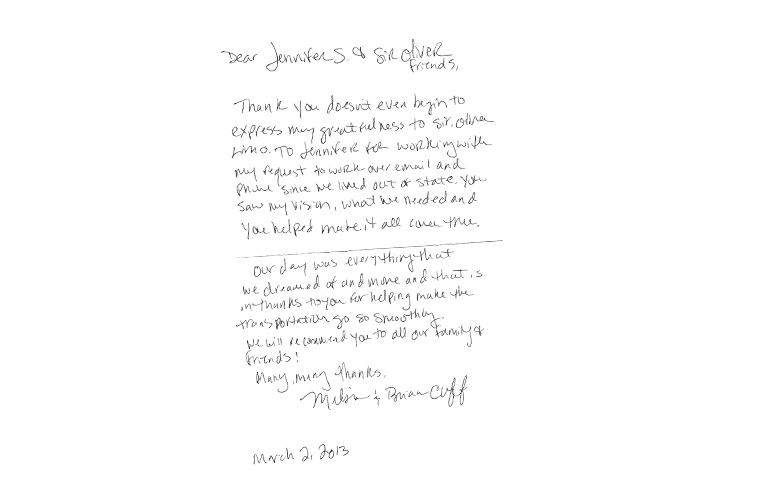 Dear Jennifer S. & Sir Oliver
friends,
Thank you doesn't even begin to
express my greatfulness to Sir. Oliver
Limo. To Jennifer for working with
my request to work over email and
phone since we lived out of state. You
saw my vision, what we needed and
you helped make it all come true.
Our day was everything that
we dreamed of and more and that is
in thanks to you for helping make the
transportation go so smoothly.
We will recommend you to all our family &
friends!
Many, many thanks,
& Brian Cuff
March 2, 2013